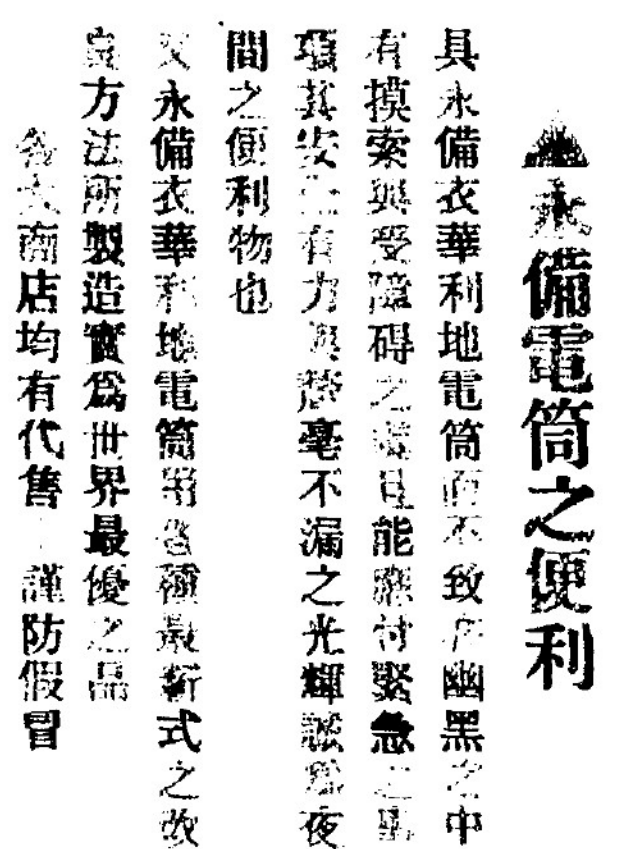 ▲永備電筒之便利
具永備衣華利地電筒而不致在幽黑之中
有摸索與受障碍之 且能應付緊急之
項其安全有力與 毫不漏之光輝誠為夜
間之便利物也
又永備衣華利地電筒用各種最新式之改
良方法所製造實為世界最優之品
各大商店均有代售 謹防假冒